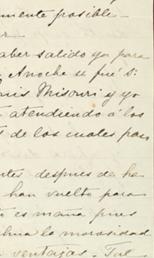 mente posible -
r.
aber salido yo para
. Anoche se fué D.
uis Misouri y yo
atendiendo á los
s de los cuales pasa

tes despues de ha
han vuelto para
es maña pues
hina la morosidad
ventajas. Tal